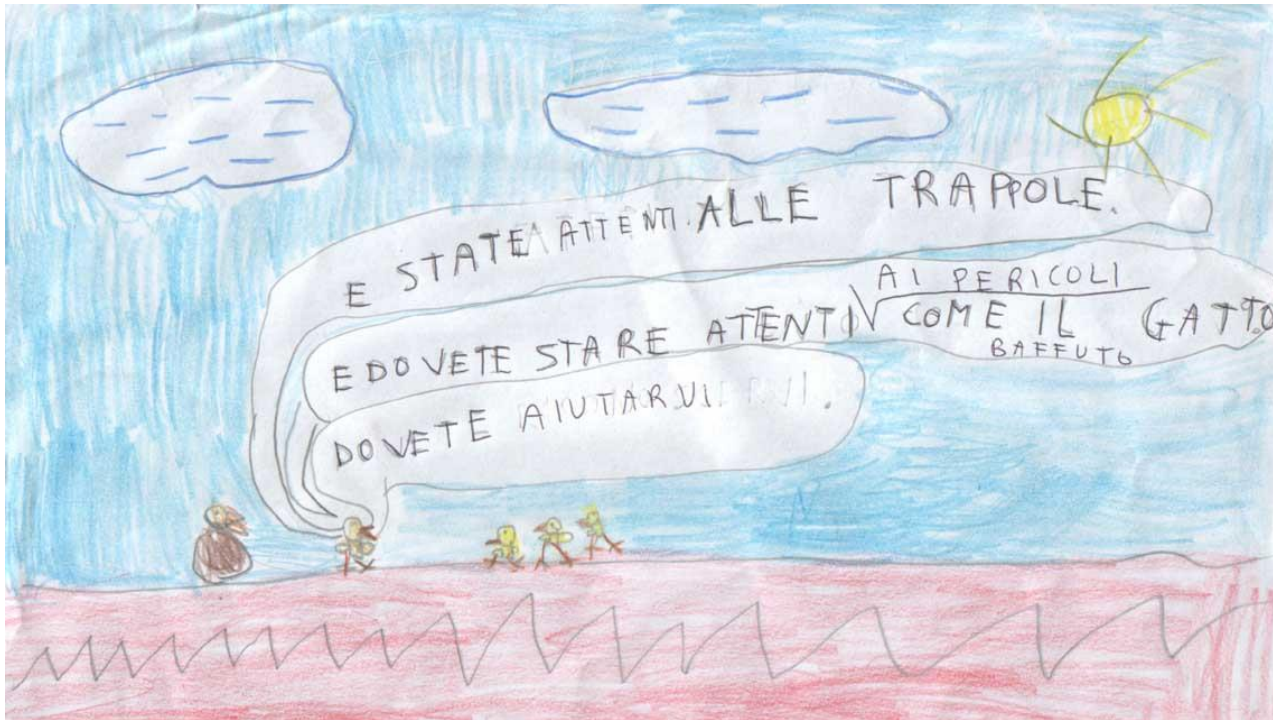 E STATE ATTENTI ALLE TRAPPOLE.
E DOVETE STARE ATTENTI AI PERICOLI
COME IL GATTO
BAFFUTO
DOVETE AIUTARVI.